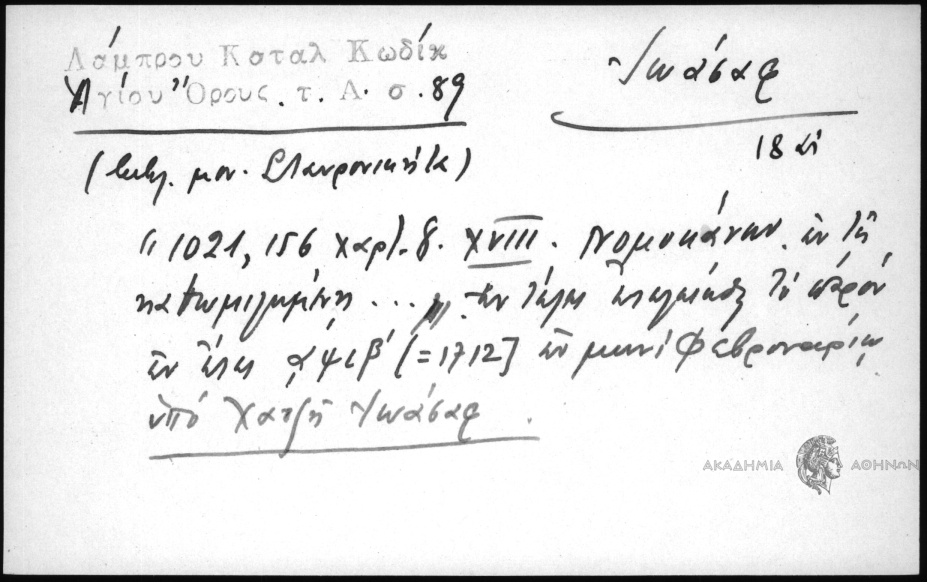 Λάμπρου Καταλ Κωδίκ
Αγίου Ὄρους. τ. Α. σ. 89
Ἰωάσαφ
18 αἰ
(βιβλ. μον. Σταυρονικήτα)
"1021, 156 χαρτ. 8. XVIII. Νομοκάνων ἐν τῇ
... " Ἐν τέλει τὸ παρὸν
ἐν ἔτει αψιβ' (=1712] ἐν μηνὶ Φεβρουαρίῳ
ὑπὸ Χατζῆ Ἰωάσαφ.
ΑΚΑΔΗΜΙΑ ΑΘΗΝΩΝ